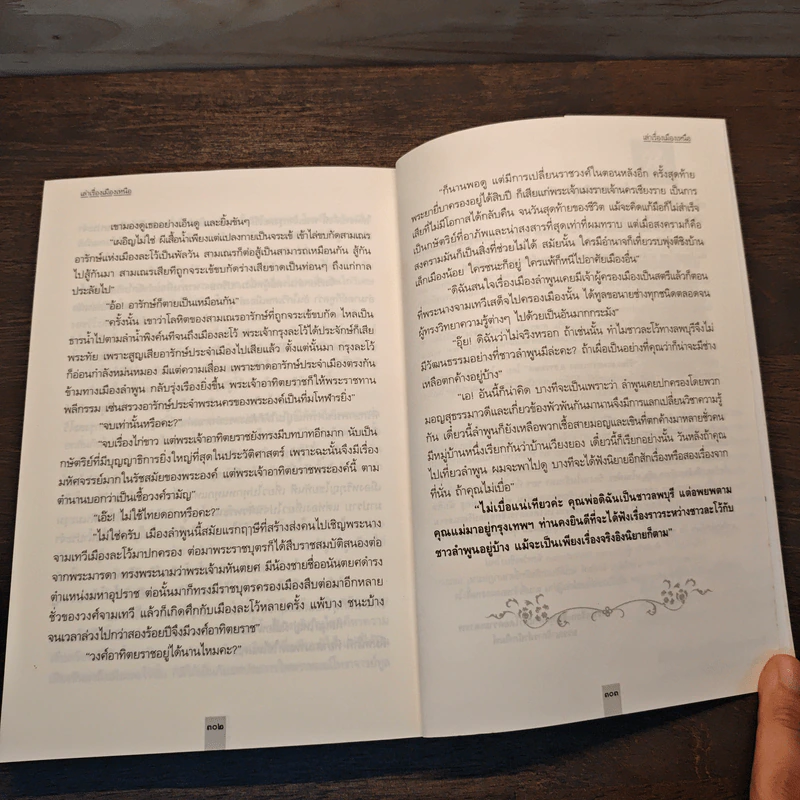 เล่าเรื่องเมืองเหนือ
เขามองดูเธออย่างเอ็นดู และยิ้มขันๆ
"เผอิญไม่ใช่ ผีเสื้อน้ำเพียงแต่แปลงกายเป็นจระเข้ เข้าไล่ขบกัดสามเณร
อารักษ์แห่งเมืองละโว้เป็นพัลวัน สามเณรก็ต่อสู้เป็นสามารถเหมือนกัน สู้กัน
ไปสู้กันมา สามเณรเสียทีถูกจระเข้ขบกัดร่างเสียขาดเป็นท่อนๆ ถึงแก่กาล
ประลัยไป"
"อ้อ! อารักษ์ก็ตายเป็นเหมือนกัน"
"ครั้งนั้น เขาว่าโลหิตของสามเณรอารักษ์ที่ถูกจระเข้ขบกัด ไหลเป็น
ธารน้ำไปตามลำน้ำพิงค์นทีจนถึงเมืองละโว้ พระเจ้ากรุงละโว้ได้ประจักษ์ก็เสีย
พระทัย เพราะสูญเสียอารักษ์ประจำเมืองไปเสียแล้ว ตั้งแต่นั้นมา กรุงละโว้
ก็อ่อนกำลังหม่นหมอง มีแต่ความเสื่อม เพราะขาดอารักษ์ประจำเมืองตรงกัน
ข้ามทางเมืองลำพูน กลับรุ่งเรืองยิ่งขึ้น พระเจ้าอาทิตยราชก็ให้พระราชทาน
พลีกรรม เซ่นสรวงอารักษ์ประจำพระนครของพระองค์เป็นที่มโหฬารยิ่ง"
"จบเท่านั้นหรือคะ?"
"จบเรื่องไก่ขาว แต่พระเจ้าอาทิตยราชยังทรงมีบทบาทอีกมาก นับเป็น
กษัตริย์ที่มีบุญญาธิการยิ่งใหญ่ที่สุดในประวัติศาสตร์ เพราะฉะนั้นจึงมีเรื่อง
มหัศจรรย์มากในรัชสมัยของพระองค์ แต่พระเจ้าอาทิตยราชพระองค์นี้ ตาม
ตำนานบอกว่าเป็นเชื้อวงศ์รามัญ"
"เอ๊ะ! ไม่ใช่ไทยดอกหรือคะ?"
"ไม่ใช่ครับ เมืองลำพูนนี้สมัยแรกฤๅษีที่สร้างส่งคนไปเชิญพระนาง
จามเทวีเมืองละโว้มาปกครอง ต่อมาพระราชบุตรก็ได้สืบราชสมบัติสนองต่อ
จากพระมารดา ทรงพระนามว่าพระเจ้ามหันตยศ มีน้องชายชื่ออนันตยศดำรง
ตำแหน่งมหาอุปราช ต่อนั้นมาก็ทรงมีราชบุตรครองเมืองสืบต่อมาอีกหลาย
ชั่วของวงศ์จามเทวี แล้วก็เกิดศึกกับเมืองละโว้หลายครั้ง แพ้บาง ชนะบ้าง
จนเวลาล่วงไปกว่าสองร้อยปีจึงมีวงศ์อาทิตยราช"
"วงศ์อาทิตยราชอยู่ได้นานไหมคะ?"
๓๐๒
เล่าเรื่องเมืองเหนือ
"ก็นานพอดู แต่มีการเปลี่ยนราชวงศ์ในตอนหลังอีก ครั้งสุดท้าย
พระยายี่บาครองอยู่ได้สิบปี ก็เสียแก่พระเจ้าเมงรายเจ้านครเชียงราย เป็นการ
เสียที่ไม่มีโอกาสได้กลับคืน จนวันสุดท้ายของชีวิต แม้จะคิดแก้มือก็ไม่สำเร็จ
เป็นกษัตริย์ที่อาภัพและน่าสงสารที่สุดเท่าที่ผมทราบ แต่เมื่อสงครามก็คือ
สงครามมันก็เป็นสิ่งที่ช่วยไม่ได้ สมัยนั้น ใครมีอำนาจก็เที่ยวรบพุ่งตีชิงบ้าน
เล็กเมืองน้อย ใครชนะก็อยู่ ใครแพ้ก็หนีไปอาศัยเมืองอื่น"
"ดิฉันสนใจเรื่องเมืองลำพูนเคยมีเจ้าผู้ครองเมืองเป็นสตรีแล้วก็ตอน
ที่พระนางจามเทวีเสด็จไปครองเมืองนั้น ได้ทูลขอนายช่างทุกชนิดตลอดจน
ผู้ทรงวิทยาความรู้ต่างๆ ไปด้วยเป็นอันมากกระมัง"
"อุ๊ย! ดิฉันว่าไม่จริงหรอก ถ้าเช่นนั้น ทำไมชาวละโว้ทางลพบุรีจึงไม่
มีวัฒนธรรมอย่างที่ชาวลำพูนมีล่ะคะ? ถ้าเผื่อเป็นอย่างที่คุณว่าก็น่าจะมีช่าง
เหลือตกค้างอยู่บ้าง"
"เอ! อันนี้ก็น่าคิด บางทีจะเป็นเพราะว่า ลำพูนเคยปกครองโดยพวก
มอญสุธรรมาวดีและเกี่ยวข้องพัวพันกันมานานจึงมีการแลกเปลี่ยนวิชาความรู้
กัน เดี๋ยวนี้ลำพูนก็ยังเหลือพวกเชื้อสายมอญและเชินที่ตกค้างมาหลายชั่วคน
มีหมู่บ้านหนึ่งเรียกกันว่าบ้านเวียงยอง เดี๋ยวนี้ก็เรียกอย่างนั้น วันหลังถ้าคุณ
ไปเที่ยวลำพูน ผมจะพาไปดู บางทีจะได้ฟังนิยายอีกสักเรื่องหรือสองเรื่องจาก
ที่นั่น ถ้าคุณไม่เบื่อ"
"ไม่เบื่อแน่เทียวค่ะ คุณพ่อดิฉันเป็นชาวลพบุรี แต่อพยพตาม
คุณแม่มาอยู่กรุงเทพฯ ท่านคงยินดีที่จะได้ฟังเรื่องราวระหว่างชาวละโว้กับ
ชาวลำพูนอยู่บ้าง แม้จะเป็นเพียงเรื่องจริงอิงนิยายก็ตาม"
๓๐๓